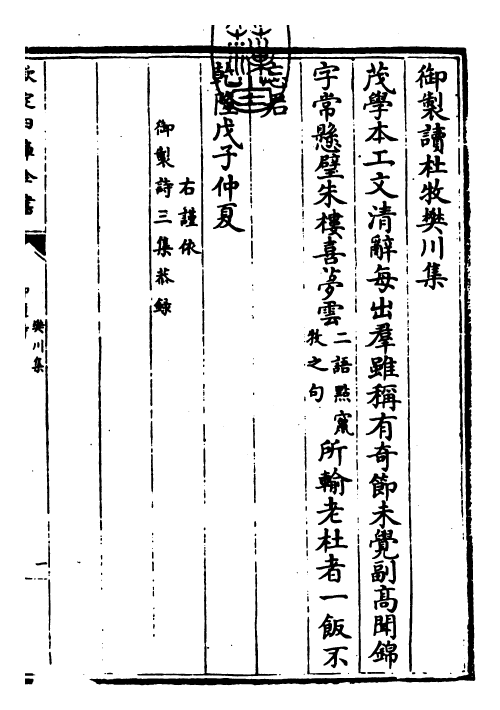 御製讀杜牧樊川集
茂學本工文清辭每出羣雖稱有奇節未覺副髙聞錦
字常懸壁朱樓喜夢雲二語點竄牧之句所輸老杜者一飯不
忘君
乾隆戊子仲夏
右謹依
御製詩三集恭錄
欽定四庫全書
樊川集
一